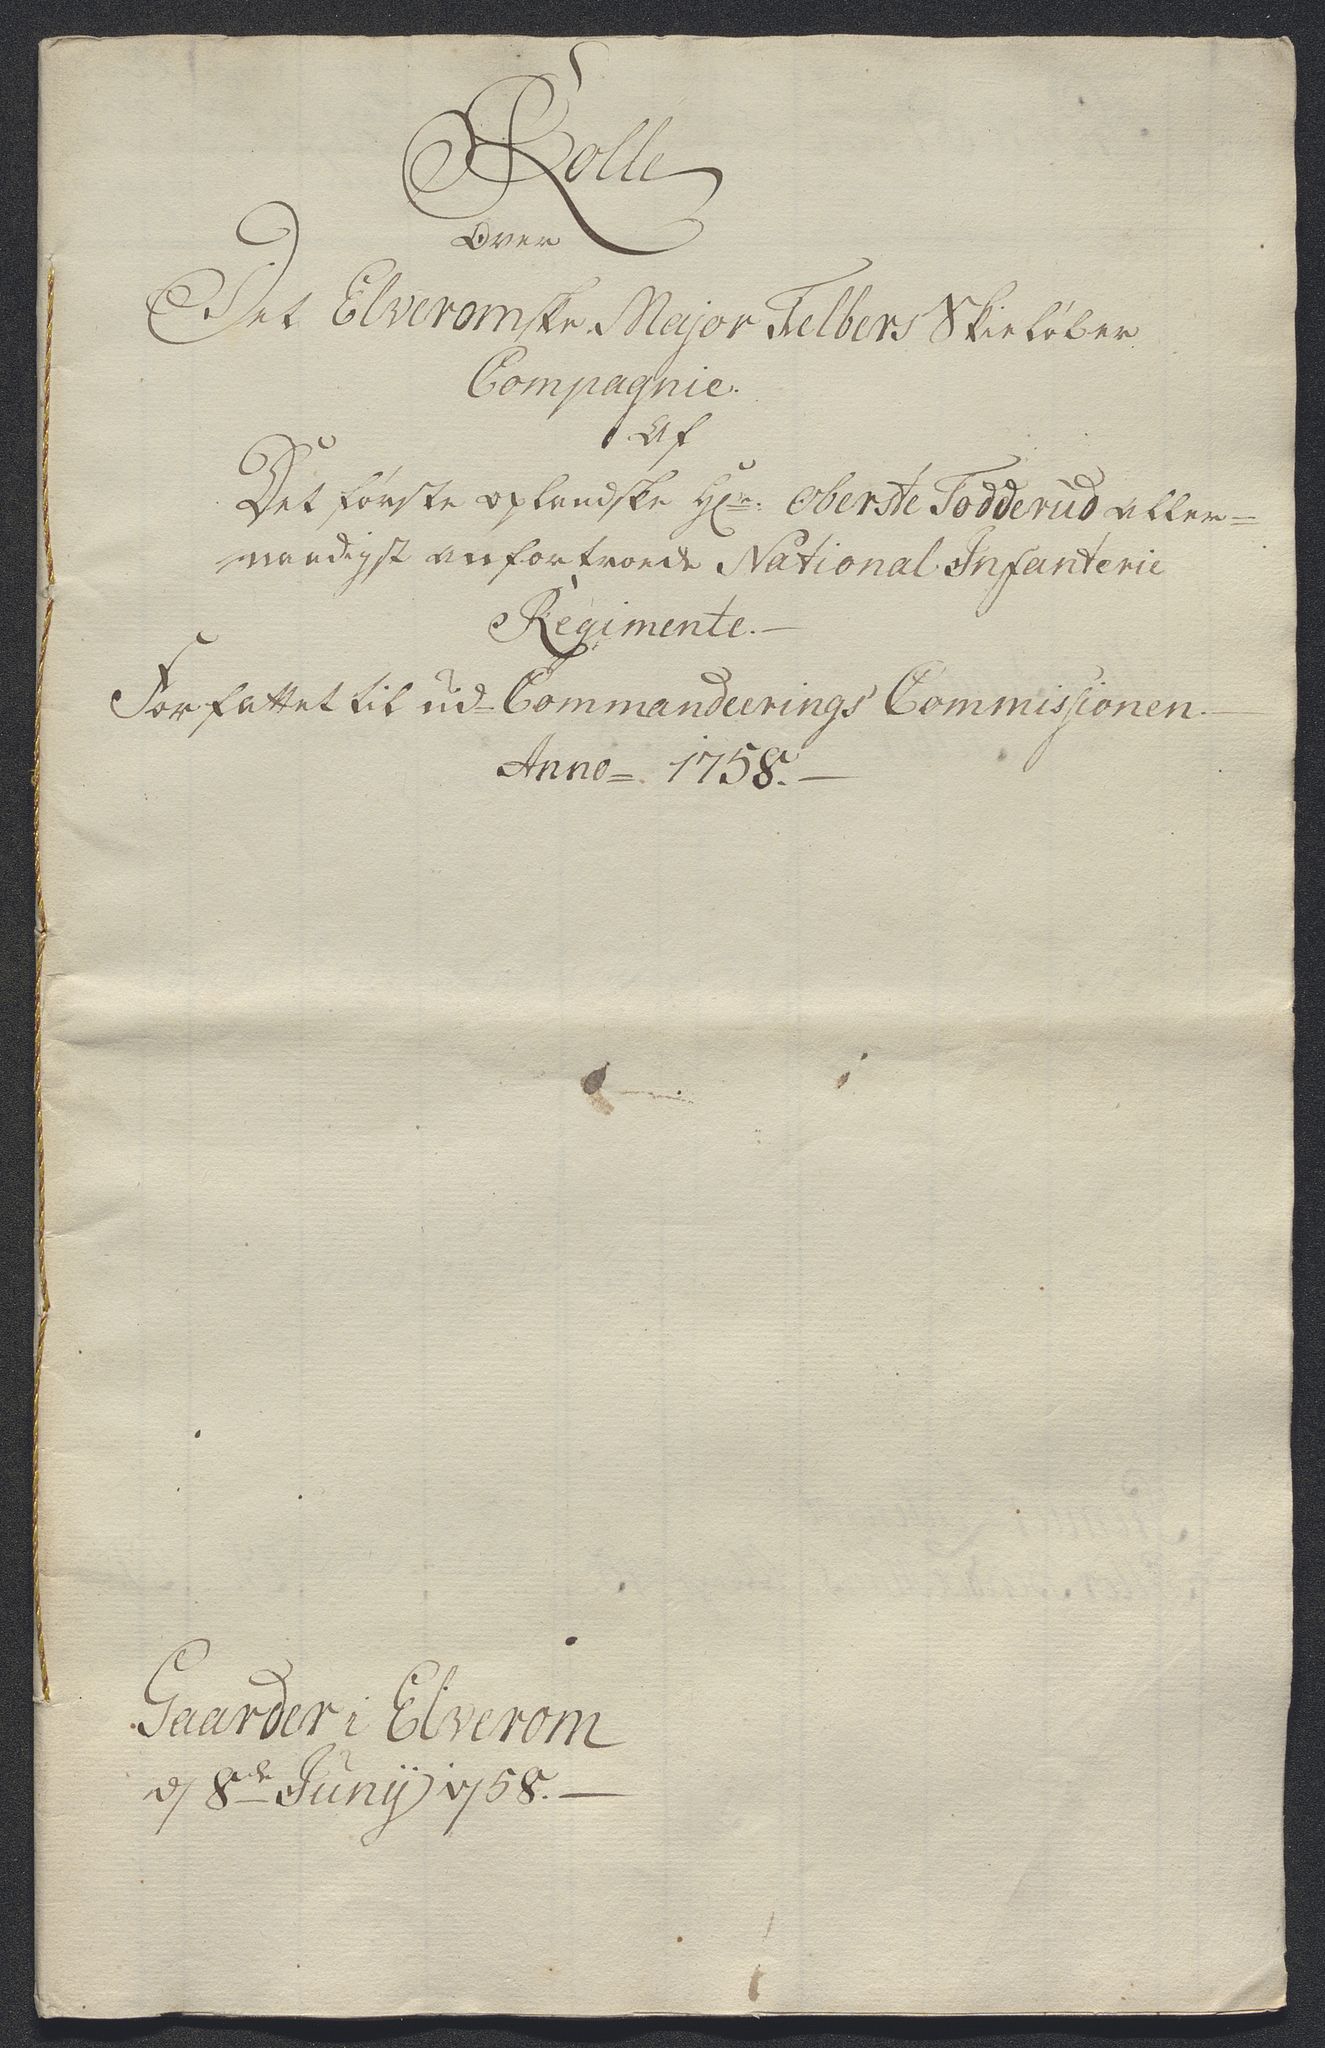 Rolle
Over
Det Elveromske Major Felbers Skieløber
Compagnie.
Af
Det første oplandske Hr: Oberste Todderud aller=
naadigst anfortroede National Infanterie
Regimente.—
Forfattet til ud= Commandeerings Commissionen.—
Anno= 1758.—
Gaarder i Elverom
d/ 8de Junÿ 1758.—